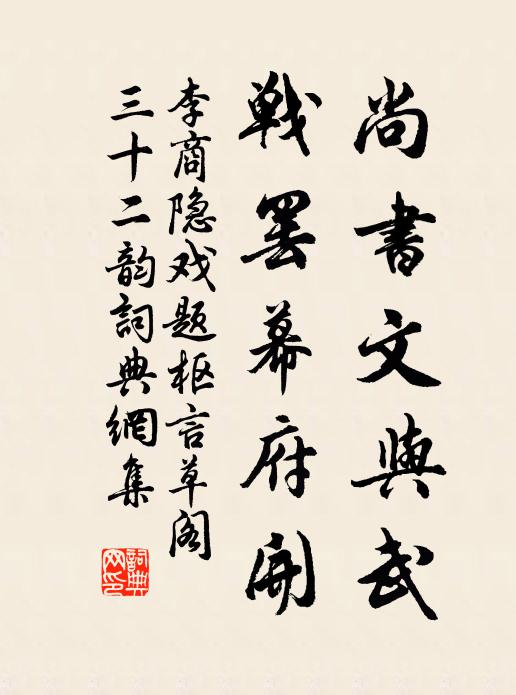 尚書文與武
戰罷幕府開
李商隐戏题枢言草阁
三十二韵詞典網集
詞典網印